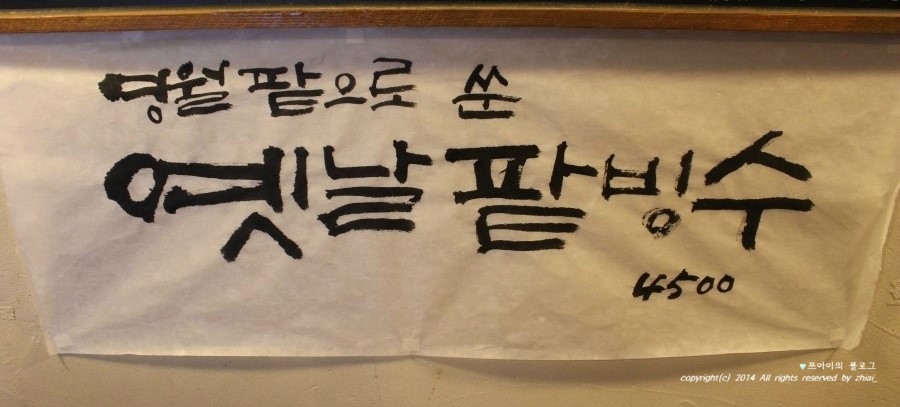 영월 팥으로 쑨
옛날 팥빙수
4500
♥쯔아이의 블로그
copyright(c) 2014 All rights reserved by zhiai_